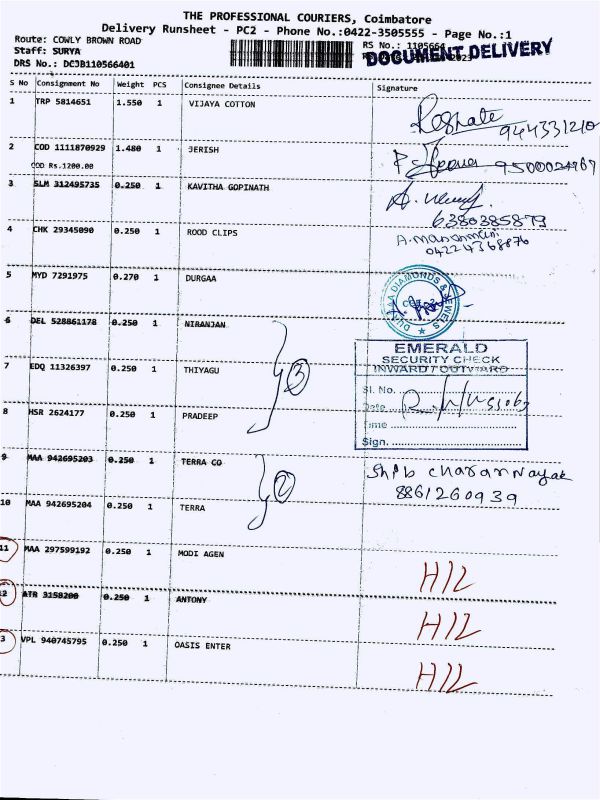 THE PROFESSIONAL COURIERS, Coimbatore
Delivery Runsheet - PC2 - Phone No.:0422-3505555 - Page No.:1
Route: COWLY BROWN ROAD
RS No.: 1105664
DOCUMENT DELIVERY
Staff: SURYA
DRS No.: DCJB110566401
S No Consignment No Weight PCS Consignee Details Signature
1 TRP 5814651 1.550 1 VIJAYA COTTON
944331210
2 COD 1111870929 1.480 1 JERISH
COD Rs.1200.00
3 SLM 312495735 0.250 1 KAVITHA GOPINATH
6380385879
4 CHK 29345090 0.250 1 ROOD CLIPS
04224368876
5 MYD 7291975 0.270 1 DURGAA
6 DEL 528861178 0.250 1 NIRANJAN
EMERALD
SECURITY CHECK
INWARD / OUTWARD
7 EDQ 11326397 0.250 1 THIYAGU
3
Sl. No.
Date
8 HSR 2624177 0.250 1 PRADEEP
Time
Sign.
9 MAA 942695203 0.250 1 TERRA CO
Shib charan Nayak
8861260939
10 MAA 942695204 0.250 1 TERRA
11 MAA 297599192 0.250 1 MODI AGEN
H/L
12 ATR 3158200 0.250 1 ANTONY
H/L
3 VPL 940745795 0.250 1 OASIS ENTER
H/L